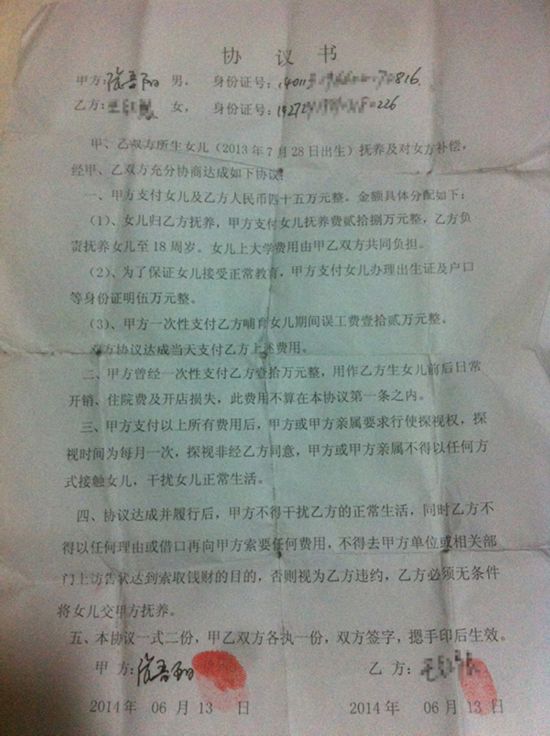 协 议 书
甲方: 男, 身份证号:
乙方: 女, 身份证号:
甲、乙双方所生女儿(2013年7月28日出生)抚养及对女方补偿,
经甲、乙双方充分协商达成如下协议:
一、甲方支付女儿及乙方人民币四十五万元整。金额具体分配如下:
(1)、女儿归乙方抚养,甲方支付女儿抚养费贰拾捌万元整,乙方负
责抚养女儿至18周岁。女儿上大学费用由甲乙双方共同负担。
(2)、为了保证女儿接受正常教育,甲方支付女儿办理出生证及户口
等身份证明伍万元整。
(3)、甲方一次性支付乙方哺育女儿期间误工费壹拾贰万元整。
方协议达成当天支付乙方上述费用。
二、甲方曾经一次性支付乙方壹拾万元整,用作乙方生女儿前后日常
开销、住院费及开店损失,此费用不算在本协议第一条之内。
三、甲方支付以上所有费用后,甲方或甲方亲属要求行使探视权,探
视时间为每月一次,探视非经乙方同意,甲方或甲方亲属不得以任何方
式接触女儿,干扰女儿正常生活。
四、协议达成并履行后,甲方不得干扰乙方的正常生活,同时乙方不
得以任何理由或借口再向甲方索要任何费用,不得去甲方单位或相关部
门上访告状达到索取钱财的目的,否则视为乙方违约,乙方必须无条件
将女儿交甲方抚养。
五、本协议一式二份,甲乙双方各执一份,双方签字,摁手印后生效。
甲 方: 乙 方:
2014年 06 月 13 日 2014 年 06 月 13 日